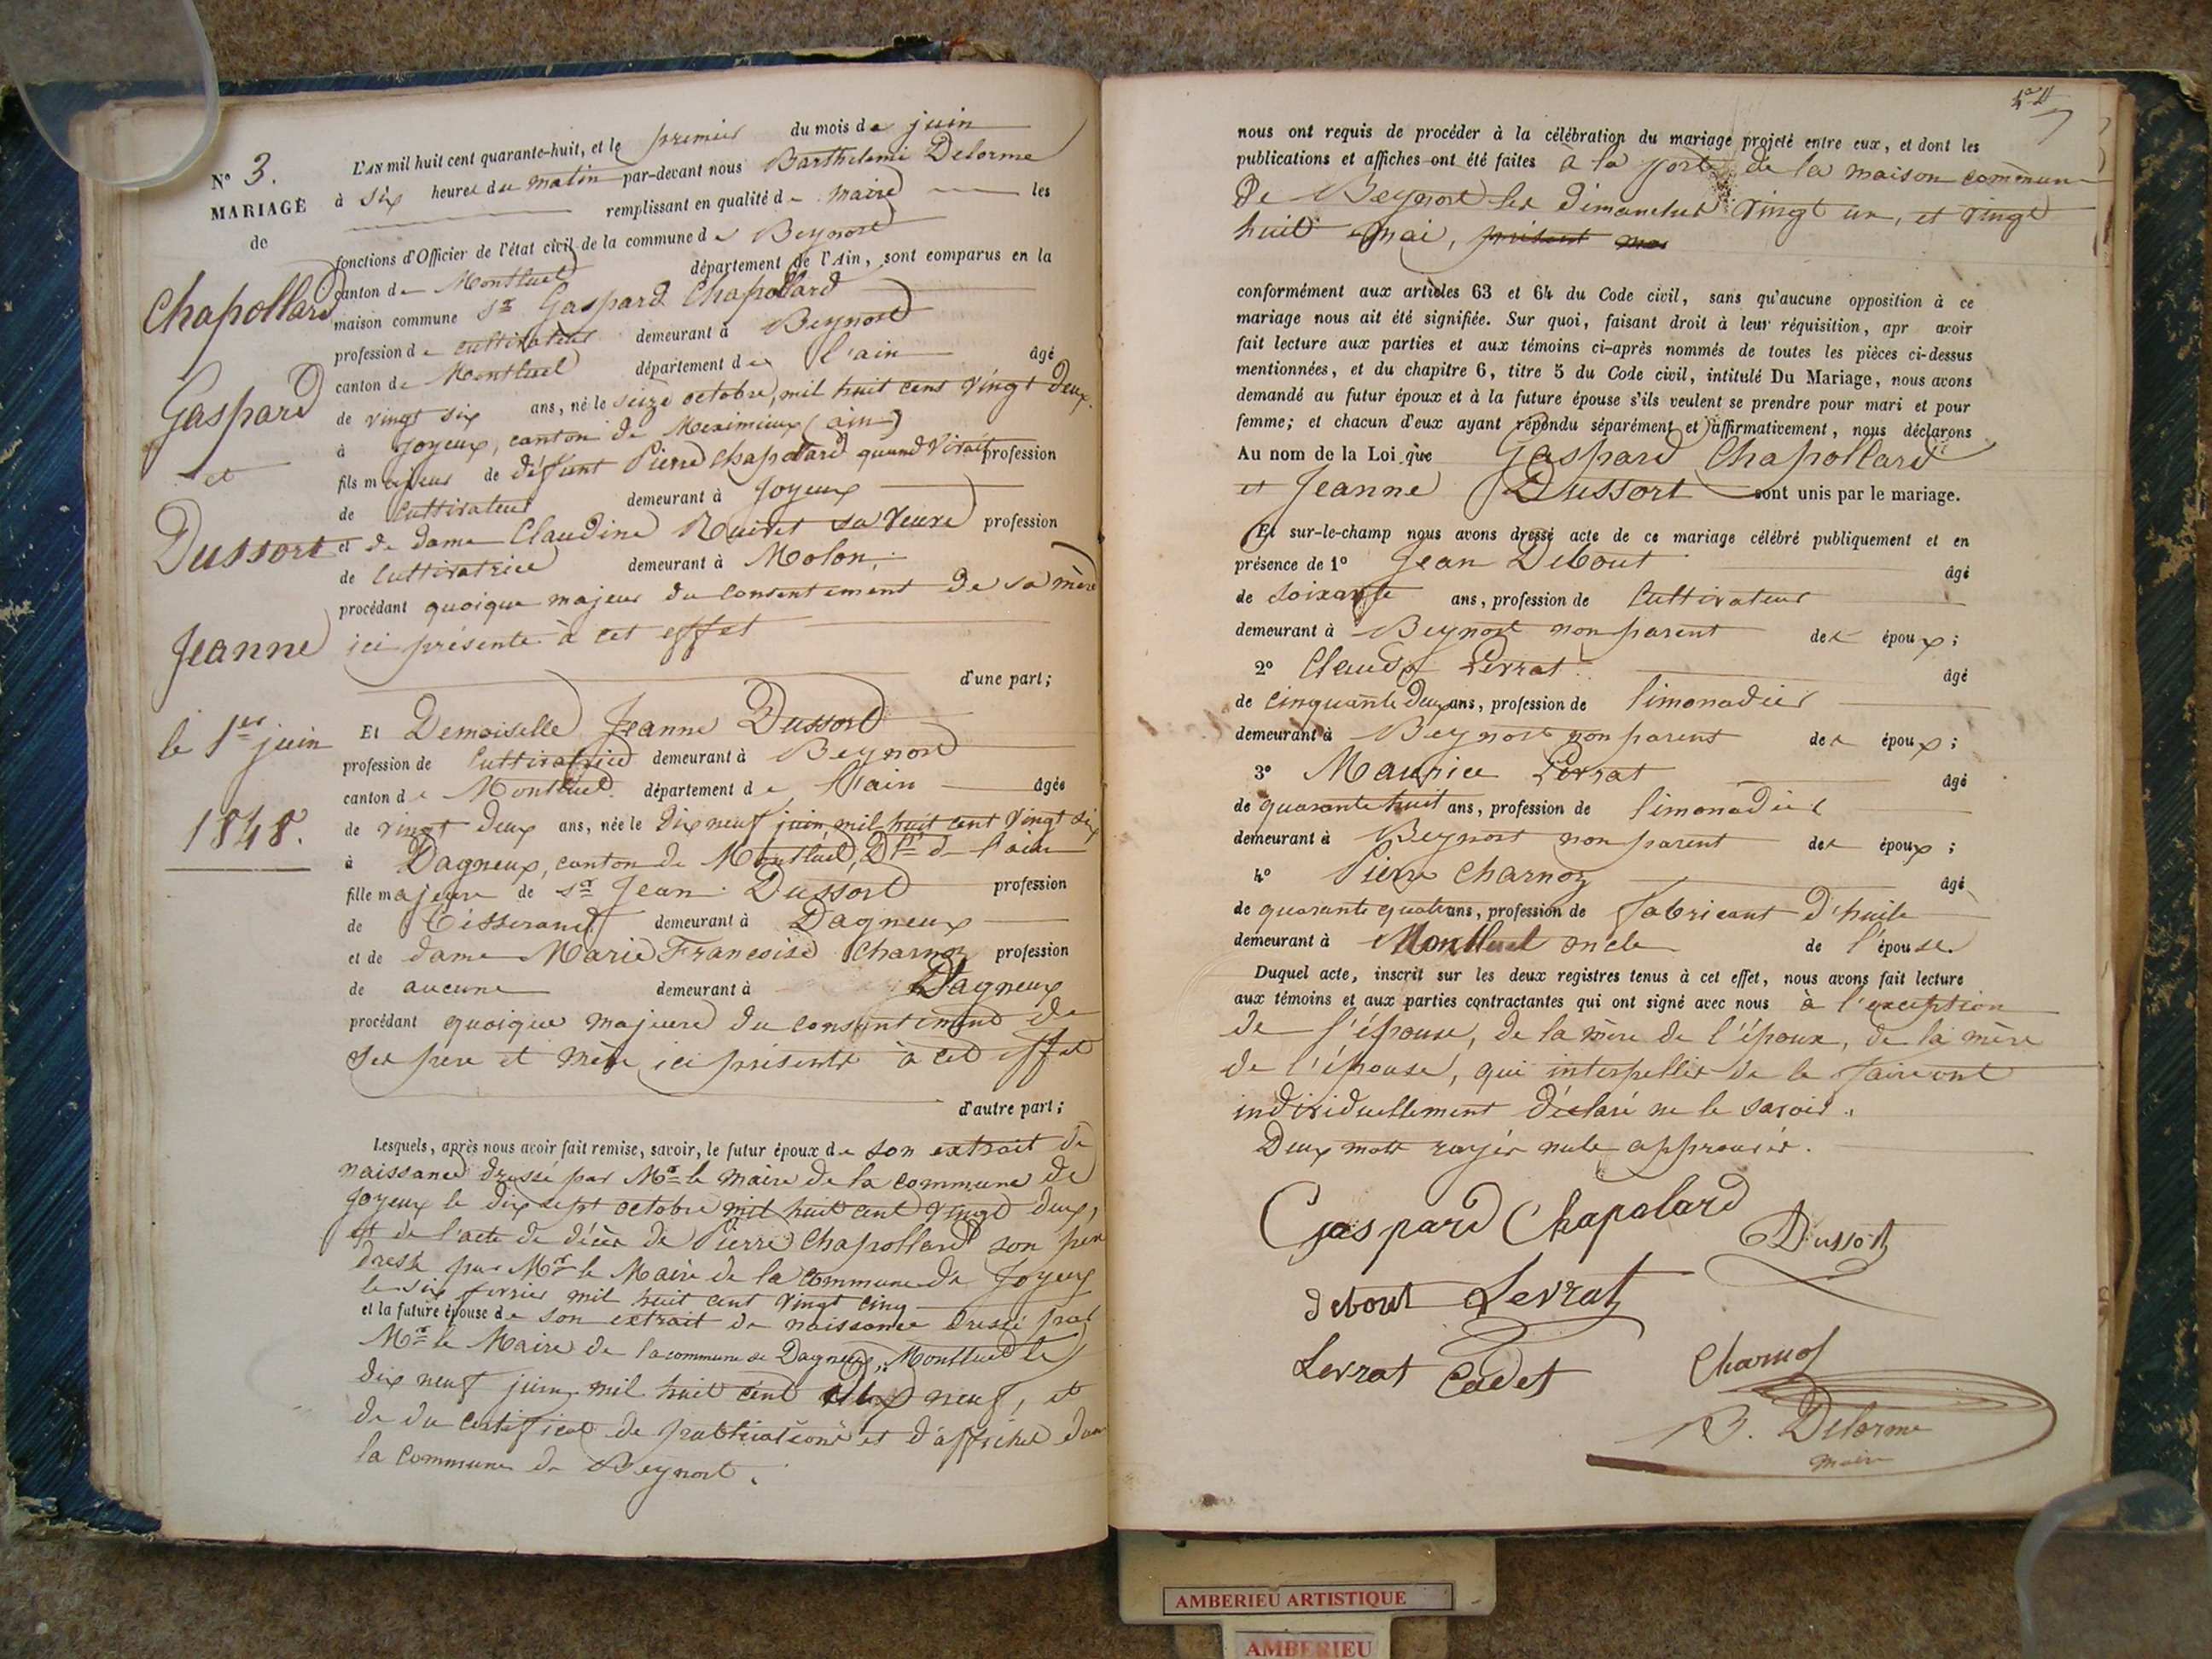 N° 3.
MARIAGE
de
Chapollard
Gaspard
et
Dussort
Jeanne
le 1er juin
1848.
L'AN mil huit cent quarante-huit, et le premier du mois de juin
à six heures du matin par-devant nous Barthélemi Delorme
remplissant en qualité de maire les
fonctions d'Officier de l'état civil de la commune de Beynost
canton de Montluel département de l'Ain, sont comparus en la
maison commune Sr Gaspard Chapollard
profession de cultivateur demeurant à Beynost
canton de Montluel département de l'ain âgé
de vingt six ans, né le seize octobre, mil huit cent vingt deux
à Joyeux, canton de Meximieux (ain)
fils majeur de défunt Pierre Chapolard quand vivait profession
de cultivateur demeurant à Joyeux
et de dame Claudine sa veuve profession
de cultivatrice demeurant à Molon,
procédant quoique majeur du consentement de sa mère
ici présente à cet effet
d'une part;
Et Demoiselle Jeanne Dussort
profession de cultivatrice demeurant à Beynost
canton de Montluel département de l'ain âgée
de vingt deux ans, née le dix neuf juin, mil huit cent vingt six
à Dagneux, canton de Montluel, Dt de l'ain
fille majeure de Sr Jean Dussort profession
de Tisserand demeurant à Dagneux
et de dame Marie Françoise Charnoz profession
de aucune demeurant à Dagneux
procédant quoique majeure du consentement de
ses père et mère ici présents à cet effet
d'autre part;
Lesquels, après nous avoir fait remise, savoir, le futur époux de son extrait de
naissance dressé par Mr le maire de la commune de
Joyeux le dix sept octobre mil huit cent vingt deux,
et de l'acte de décès de Pierre Chapollard son père
dressé par Mr le Maire de la commune de Joyeux
le six février mil huit cent vingt cinq
et la future épouse de son extrait de naissance dressé par
Mr le Maire de la commune de Dagneux, Montluel le
dix neuf juin mil huit cent neuf, et
de du certificat de publications et d'affiches dans
la commune de Beynost.
nous ont requis de procéder à la célébration du mariage projeté entre eux, et dont les
publications et affiches ont été faites à la porte de la maison commune
de Beynost les dimanches vingt un, et vingt
huit mai, présent mois
conformément aux articles 63 et 64 du Code civil, sans qu'aucune opposition à ce
mariage nous ait été signifiée. Sur quoi, faisant droit à leur réquisition, apr avoir
fait lecture aux parties et aux témoins ci-après nommés de toutes les pièces ci-dessus
mentionnées, et du chapitre 6, titre 5 du Code civil, intitulé Du Mariage, nous avons
demandé au futur époux et à la future épouse s'ils veulent se prendre pour mari et pour
femme; et chacun d'eux ayant répondu séparément et affirmativement, nous déclarons
Au nom de la Loi que Gaspard Chapollard
et Jeanne Dussort sont unis par le mariage.
Et sur-le-champ nous avons dressé acte de ce mariage célébré publiquement et en
présence de 1° Jean Debout âgé
de soixante ans, profession de cultivateur
demeurant à Beynost non parent des époux;
2° Claude Levrat âgé
de cinquante deux ans, profession de limonadier
demeurant à Beynost non parent des époux;
3° Maurice Levrat âgé
de quarante huit ans, profession de limonadier
demeurant à Beynost non parent des époux;
4° Pierre Charnoz âgé
de quarante quatre ans, profession de fabricant d'huile
demeurant à Montluel oncle de l'épouse.
Duquel acte, inscrit sur les deux registres tenus à cet effet, nous avons fait lecture
aux témoins et aux parties contractantes qui ont signé avec nous à l'exception
de l'épouse, de la mère de l'époux, de la mère
de l'épouse, qui interpellés de le faire ont
individuellement déclaré ne le savoir.
Deux mots rayés nuls approuvés.
Gaspard Chapalard
Dussort
debout Levrat
Levrat Cadet
Charnoz
B. Delorme
maire
AMBERIEU ARTISTIQUE
AMBERIEU